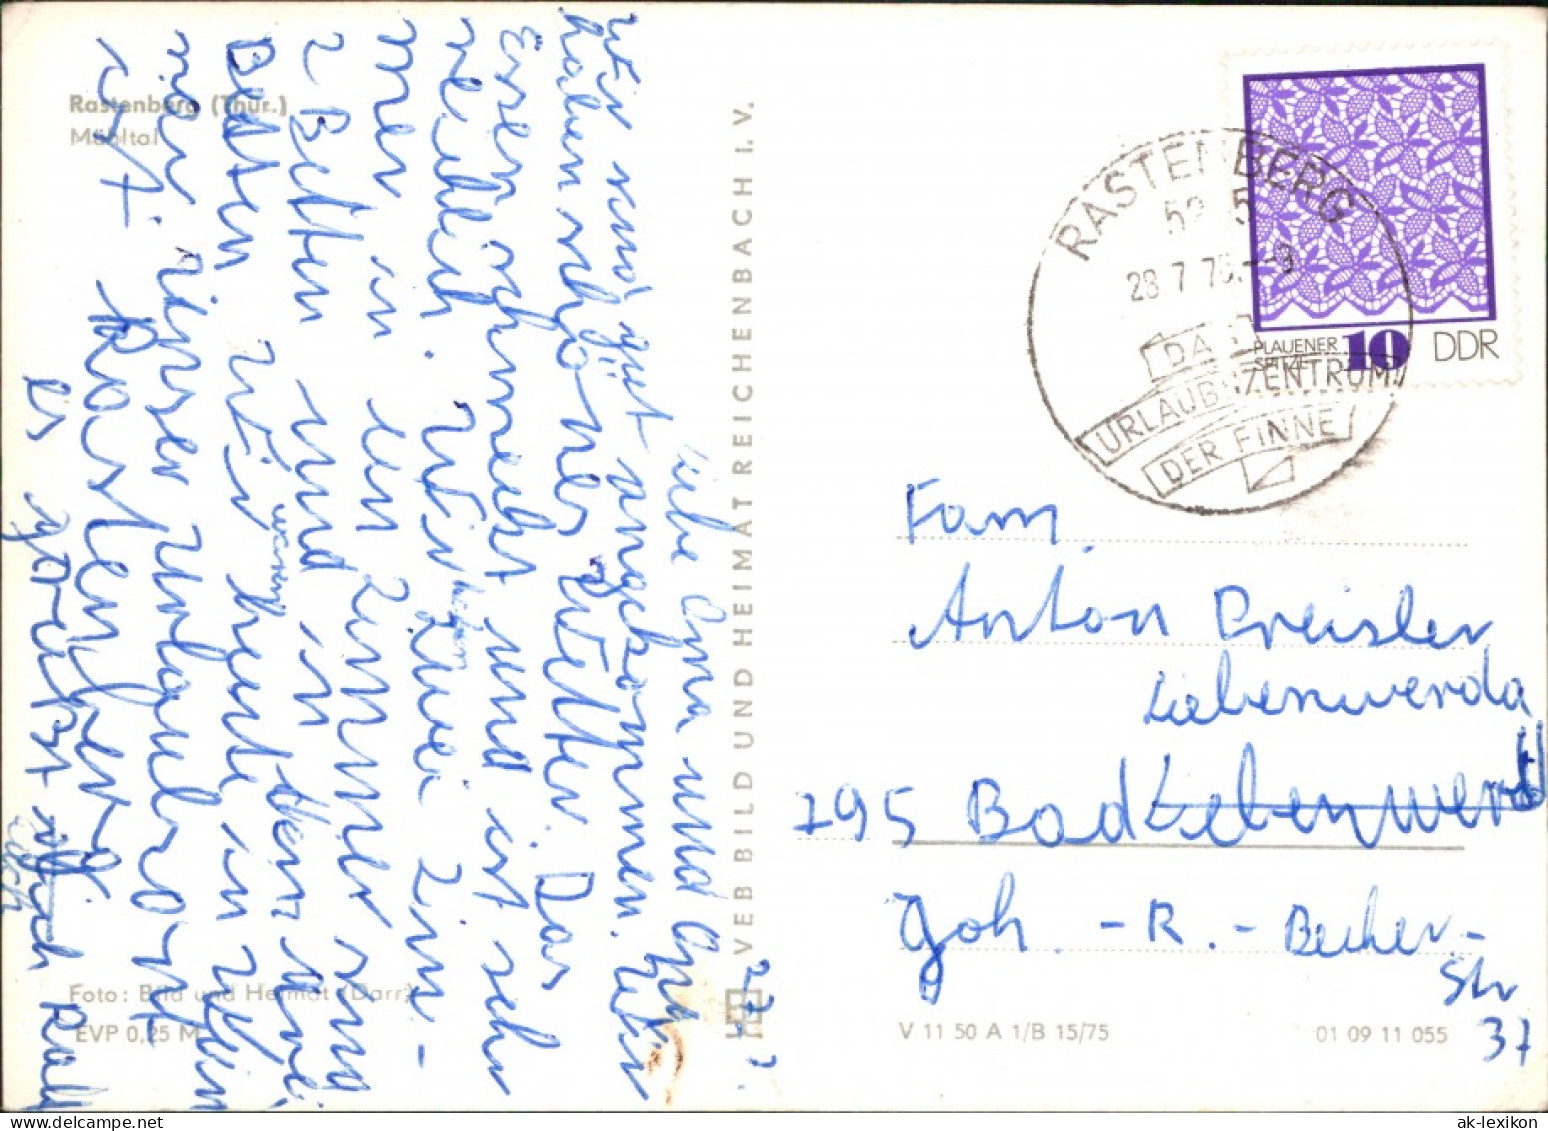 Rastenberg (Thür.)
Mühltal
27.7.
Liebe Oma und Opa
Wir sind gut angekommen. Wir
haben schönes Wetter. Das
Essen schmeckt und ist sehr
reichlich. Wir haben zwei Zim-
mer in ein Zimmer sind
2 Betten und in dem drei
Betten. Wir waren heute in
unser Urlaubsort
Rastenberg
es grüßt euch
VEB BILD UND HEIMAT REICHENBACH I. V.
Foto: Bild und Heimat (Darr)
EVP 0,25 M
RASTENBERG
28.7.75.--9
DAS
URLAUBSZENTRUM
DER FINNE
PLAUENER
SPITZE
10
DDR
Fam.
Anton Preisler
Liebenwerda
795 Bad Liebenwerd
Joh. - R. - Becher -
Str
37
V 11 50 A 1/B 15/75
01 09 11 055
ak-lexikon.com